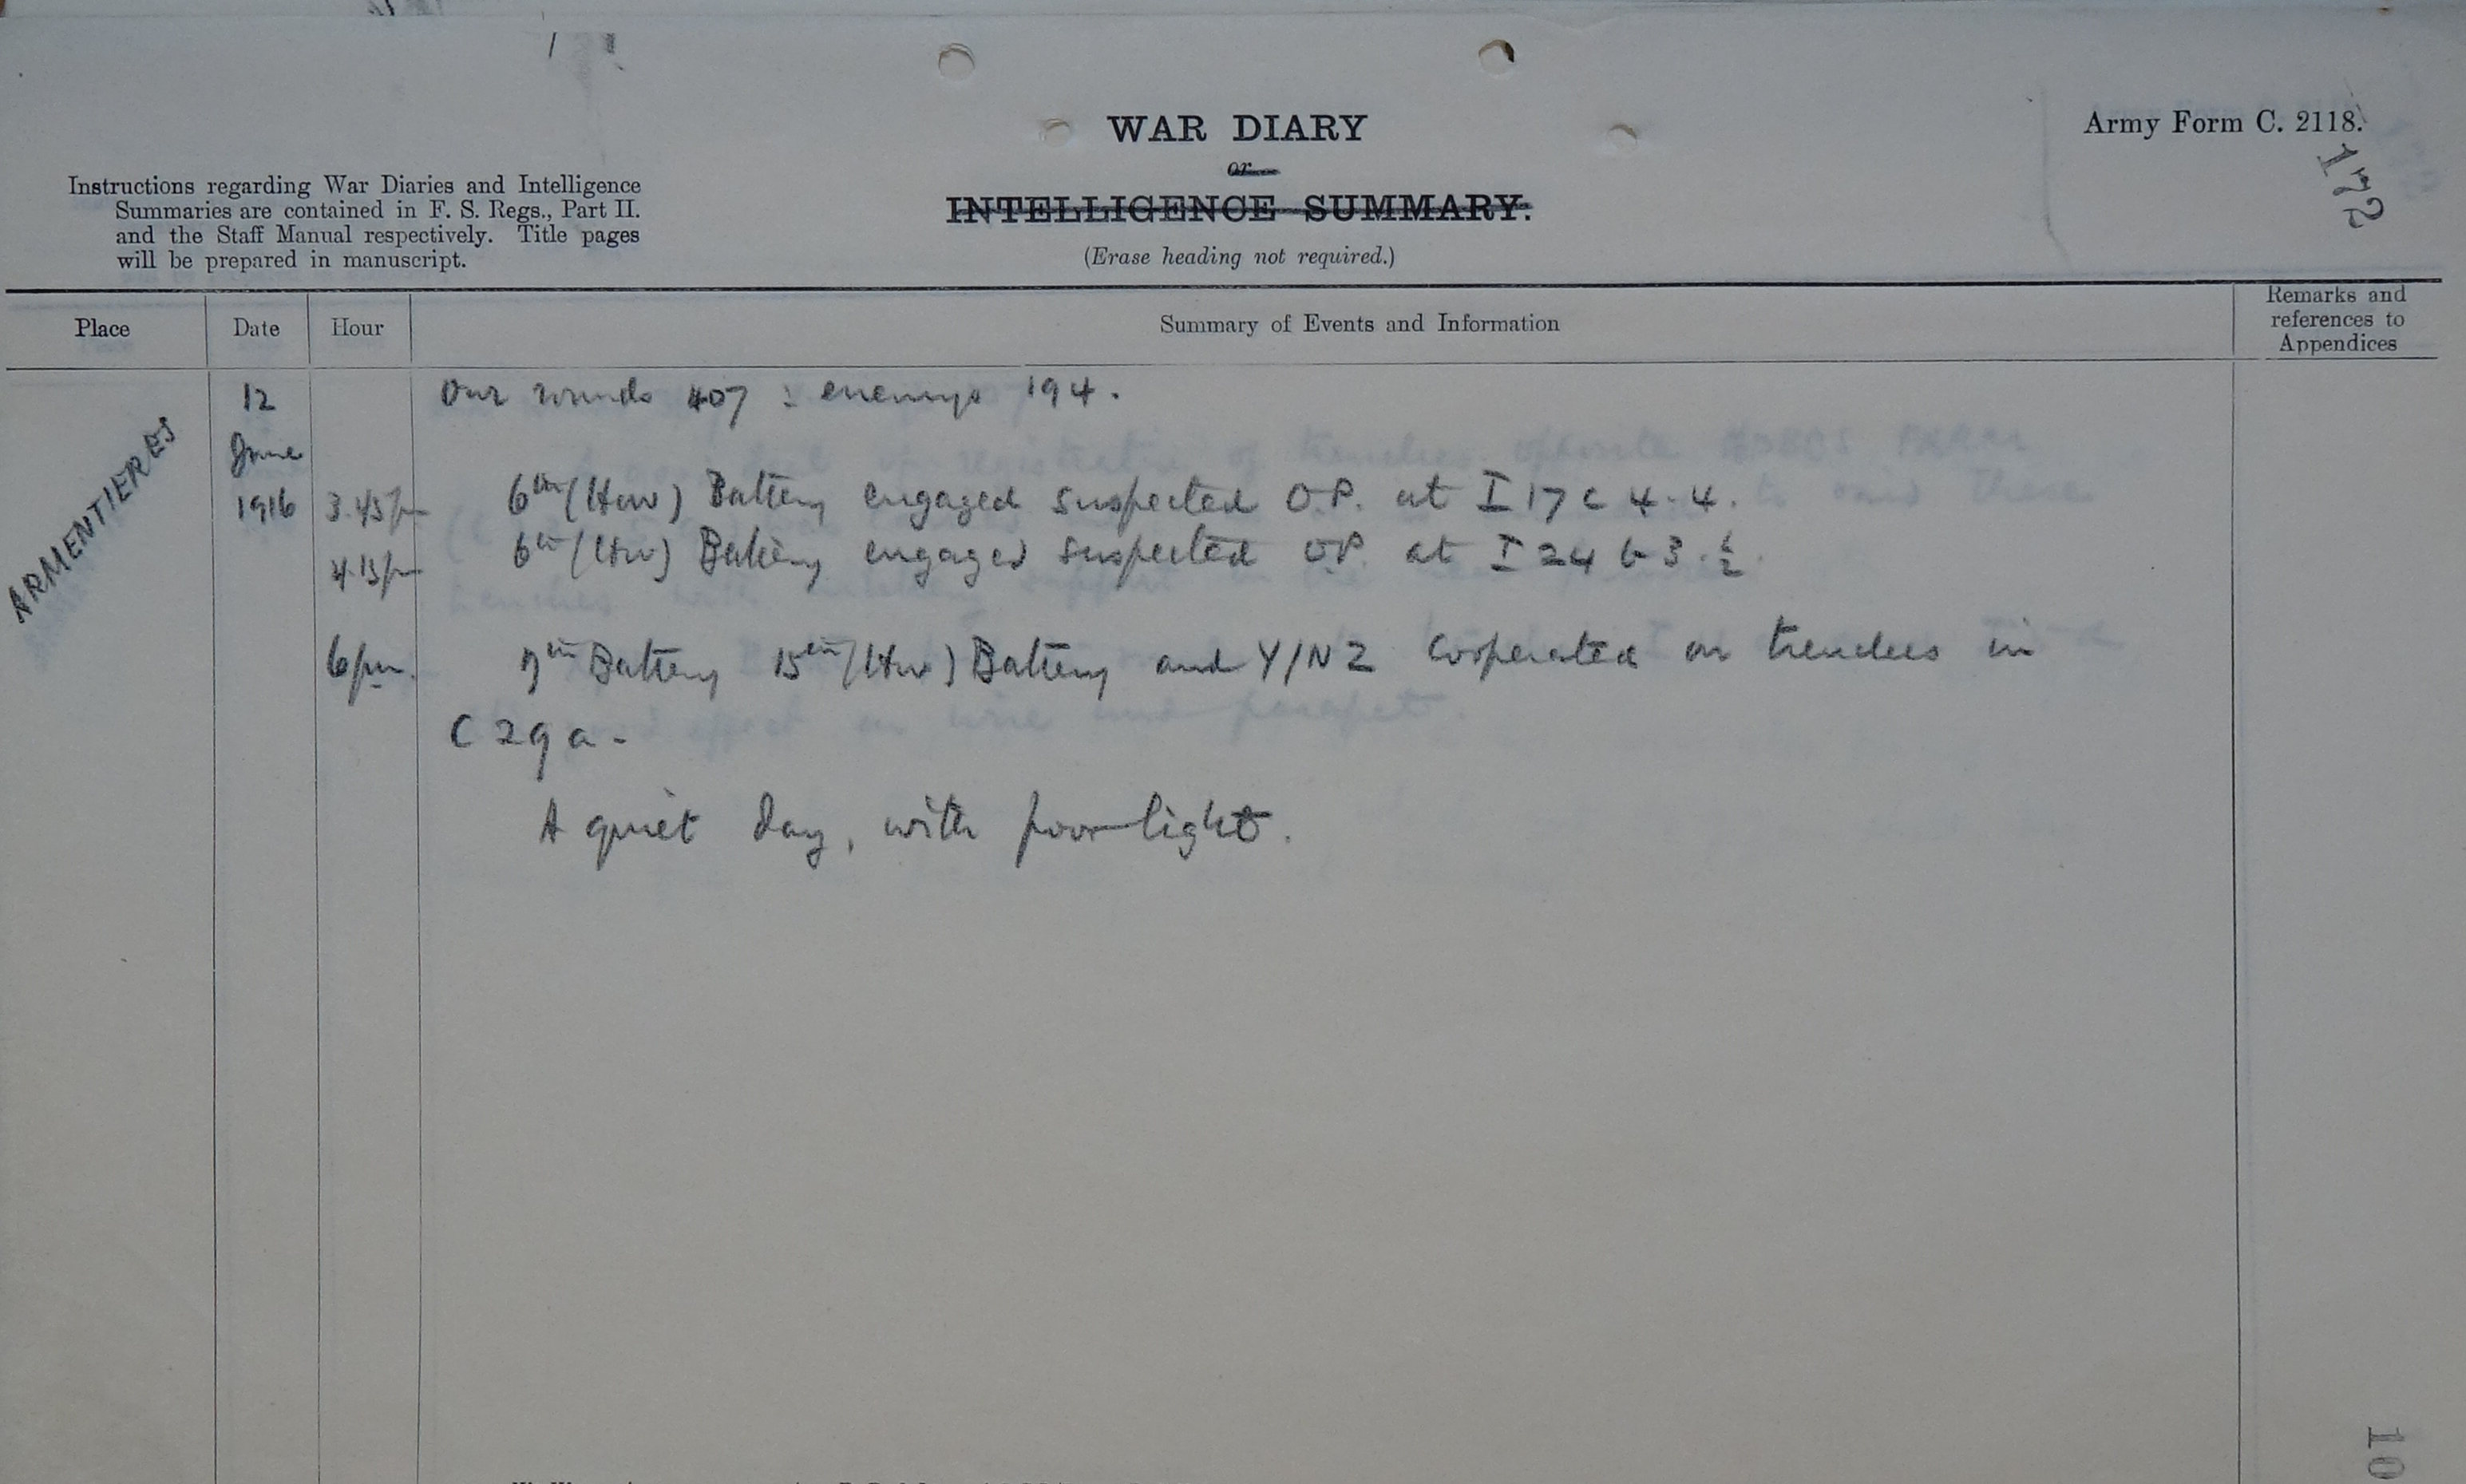 WAR DIARY
Army Form C. 2118.
172
or
INTELLIGENCE SUMMARY.
(Erase heading not required.)
Instructions regarding War Diaries and Intelligence
Summaries are contained in F. S. Regs., Part II.
and the Staff Manual respectively. Title pages
will be prepared in manuscript.
Place Date Hour Summary of Events and Information Remarks and
references to
Appendices
ARMENTIERES
12 Our rounds 407 : enemys 194.
June
1916 3.45pm 6th (How) Battery engaged suspected O.P. at I 17 c 4.4.
4.15pm 6th (How) Battery engaged suspected O.P. at I 24 b 3.½.
6pm. 7th Battery 15th (How) Battery and Y/NZ Cooperated on trenches in
C 29 a.
A quiet day, with poor light.
10